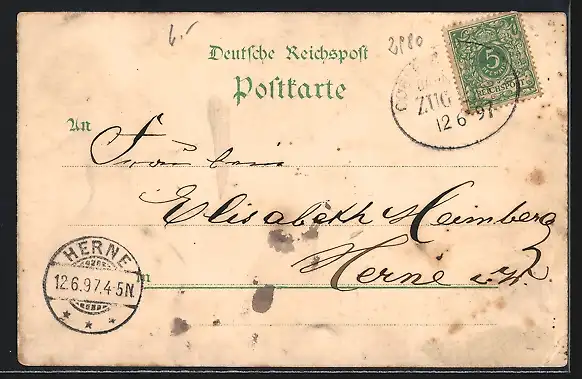 6.-
2880
Deutsche Reichspost
Postkarte
5
REICHSPOST
ZUG
12 6 97
An
Fräulein
Elisabeth Heimberg
in Herne i. W.
HERNE
12.6.97.4-5N.